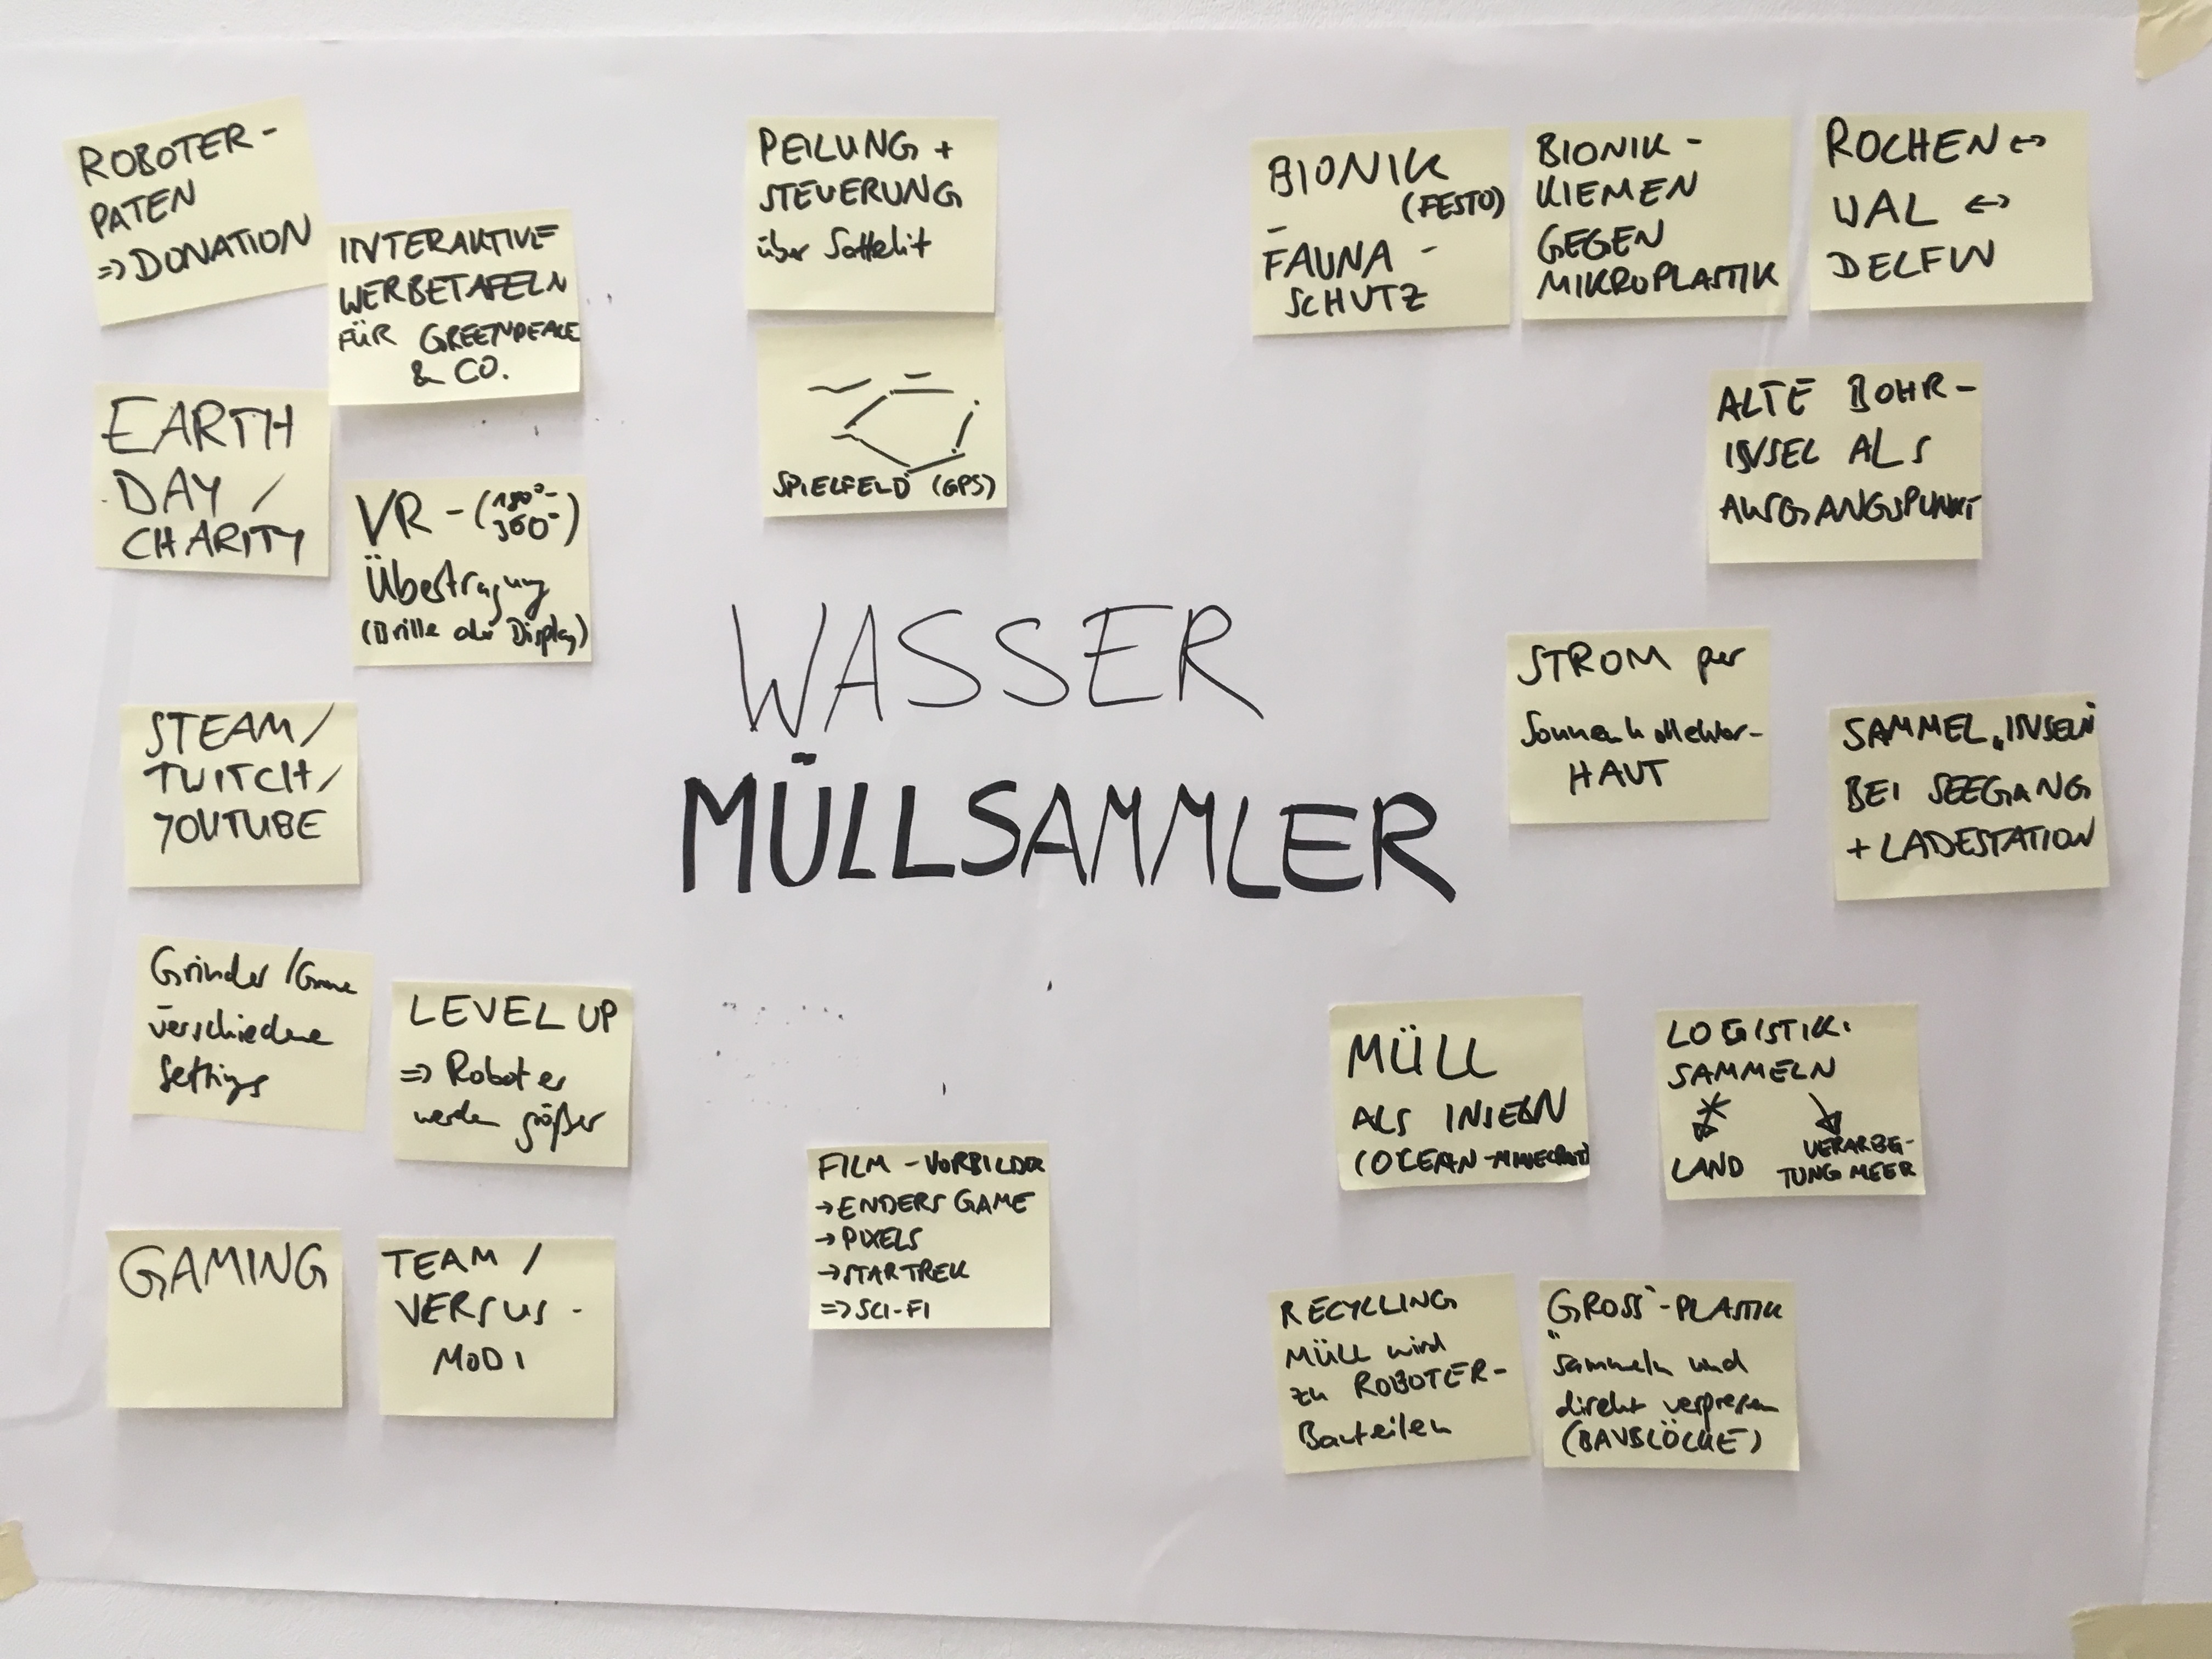 ROBOTER-
PATEN
=> DONATION
INTERAKTIVE
WERBETAFELN
FÜR GREENPEACE
& CO.
EARTH
DAY /
CHARITY
VR - (180°-
360°)
Übertragung
(Brille oder Display)
STEAM/
TWITCH/
YOUTUBE
Grinder /Game
verschiedene
Settings
LEVEL UP
=> Roboter
werden größer
GAMING
TEAM /
VERSUS -
MODI
PEILUNG +
STEUERUNG
über Sattelit
SPIELFELD (GPS)
WASSER
MÜLLSAMMLER
FILM - VORBILDER
→ ENDERS GAME
→ PIXELS
→ STAR TREK
=> SCI-FI
BIONIK
(FESTO)
-
FAUNA -
SCHUTZ
BIONIK -
KIEMEN
GEGEN
MIKROPLASTIK
ROCHEN <->
WAL <->
DELFIN
ALTE BOHR-
INSEL ALS
AUSGANGSPUNKT
STROM per
Sonnenkollektor-
HAUT
SAMMEL „INSELN"
BEI SEEGANG
+ LADESTATION
MÜLL
ALS INSELN
(OCEAN-MINECRAFT)
LOGISTIK:
SAMMELN
LAND
VERARBEI-
TUNG MEER
RECYCLING
MÜLL wird
zu ROBOTER-
Bauteilen
GROSS"-PLASTIK
"sammeln und
direkt verpressen
(BAUBLÖCKE)